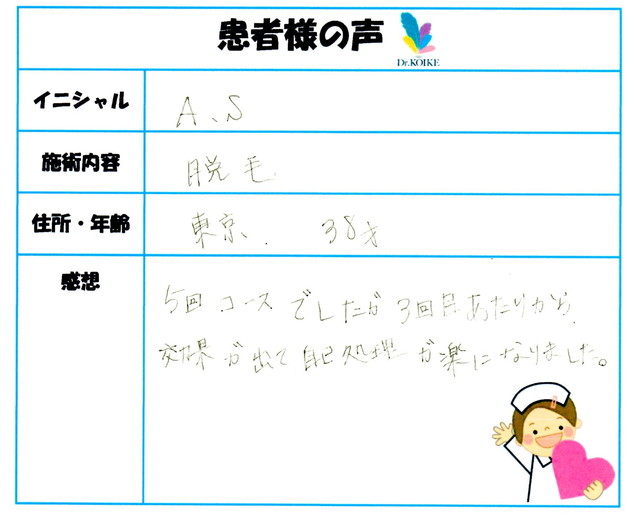 患者様の声
Dr.KOIKE
イニシャル
A、S
施術内容
脱毛
住所・年齢
東京、 38才
感想
5回コースでしたが3回目あたりから
効果が出て自己処理が楽になりました。